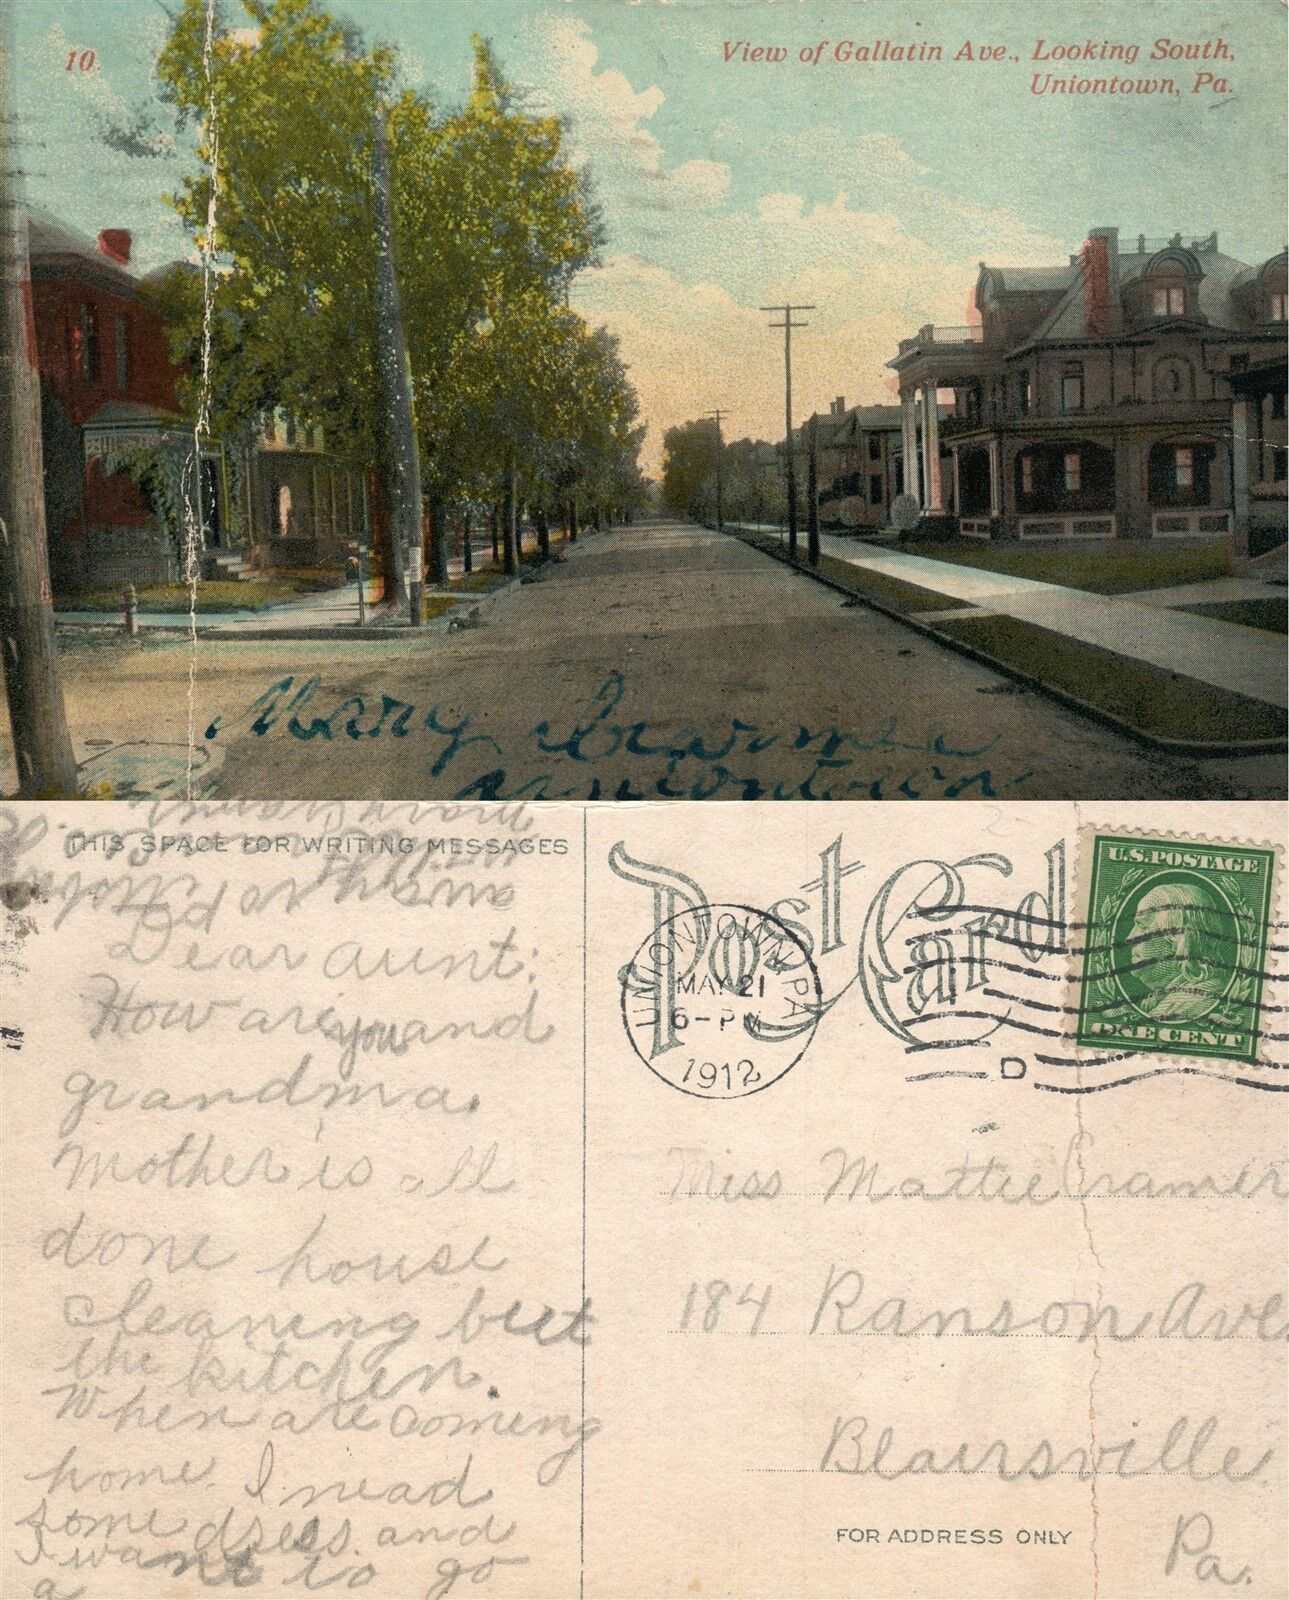 10
View of Gallatin Ave., Looking South,
Uniontown, Pa.
Mary
Uniontown
THIS SPACE FOR WRITING MESSAGES
Dear aunt:
How are you and
grandma.
Mother is all
done house
cleaning but
the kitchen.
When are comeing
home. I nead
some dress. and
I want to go
a
Post Card
UNIONTOWN, PA
MAY 21
6-PM
1912
U.S. POSTAGE
ONE CENT
D
Miss Mattie Cramer
184 Ranson Ave.
Blairsville
Pa.
FOR ADDRESS ONLY